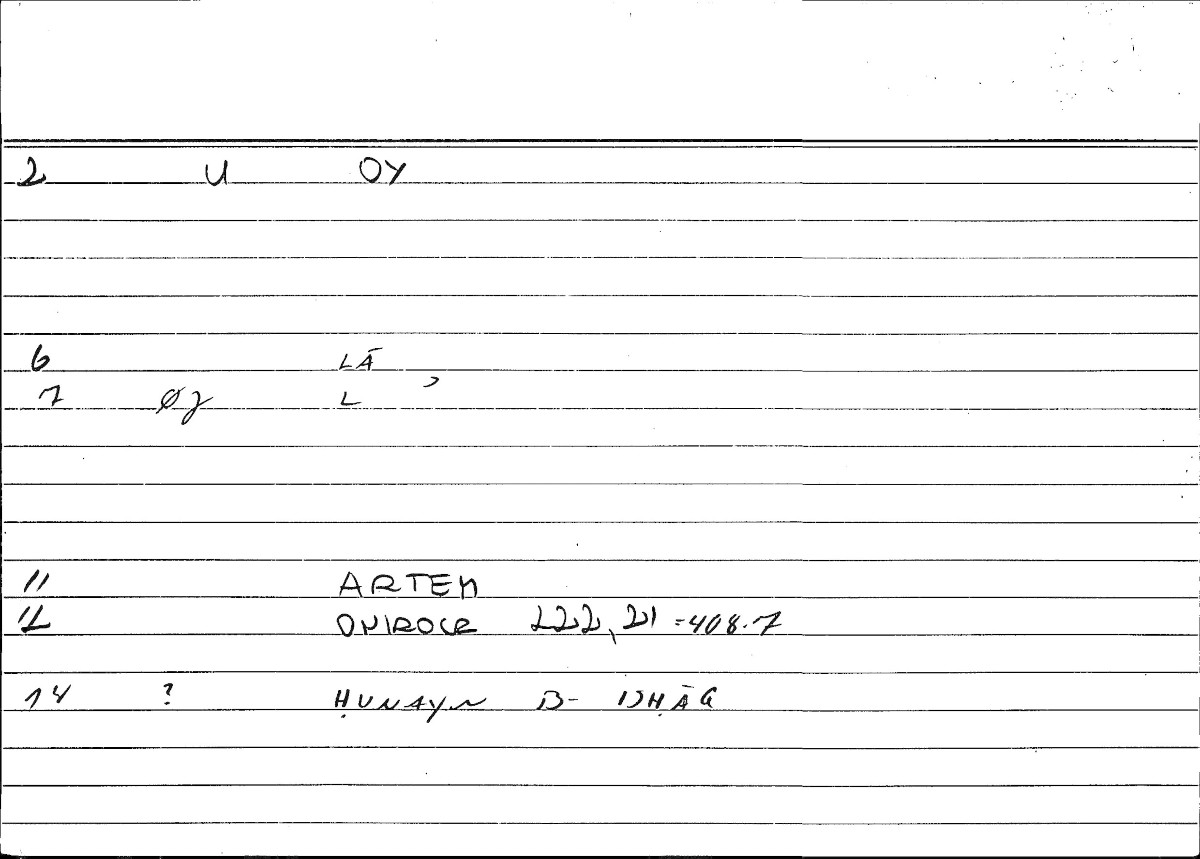 2 U OY
6 LĀ
7 øj L ʾ
11 ARTEM
12 ONIROCR 222, 21 =408.7
14 ? ḤUNAYN B- ISḤĀQ